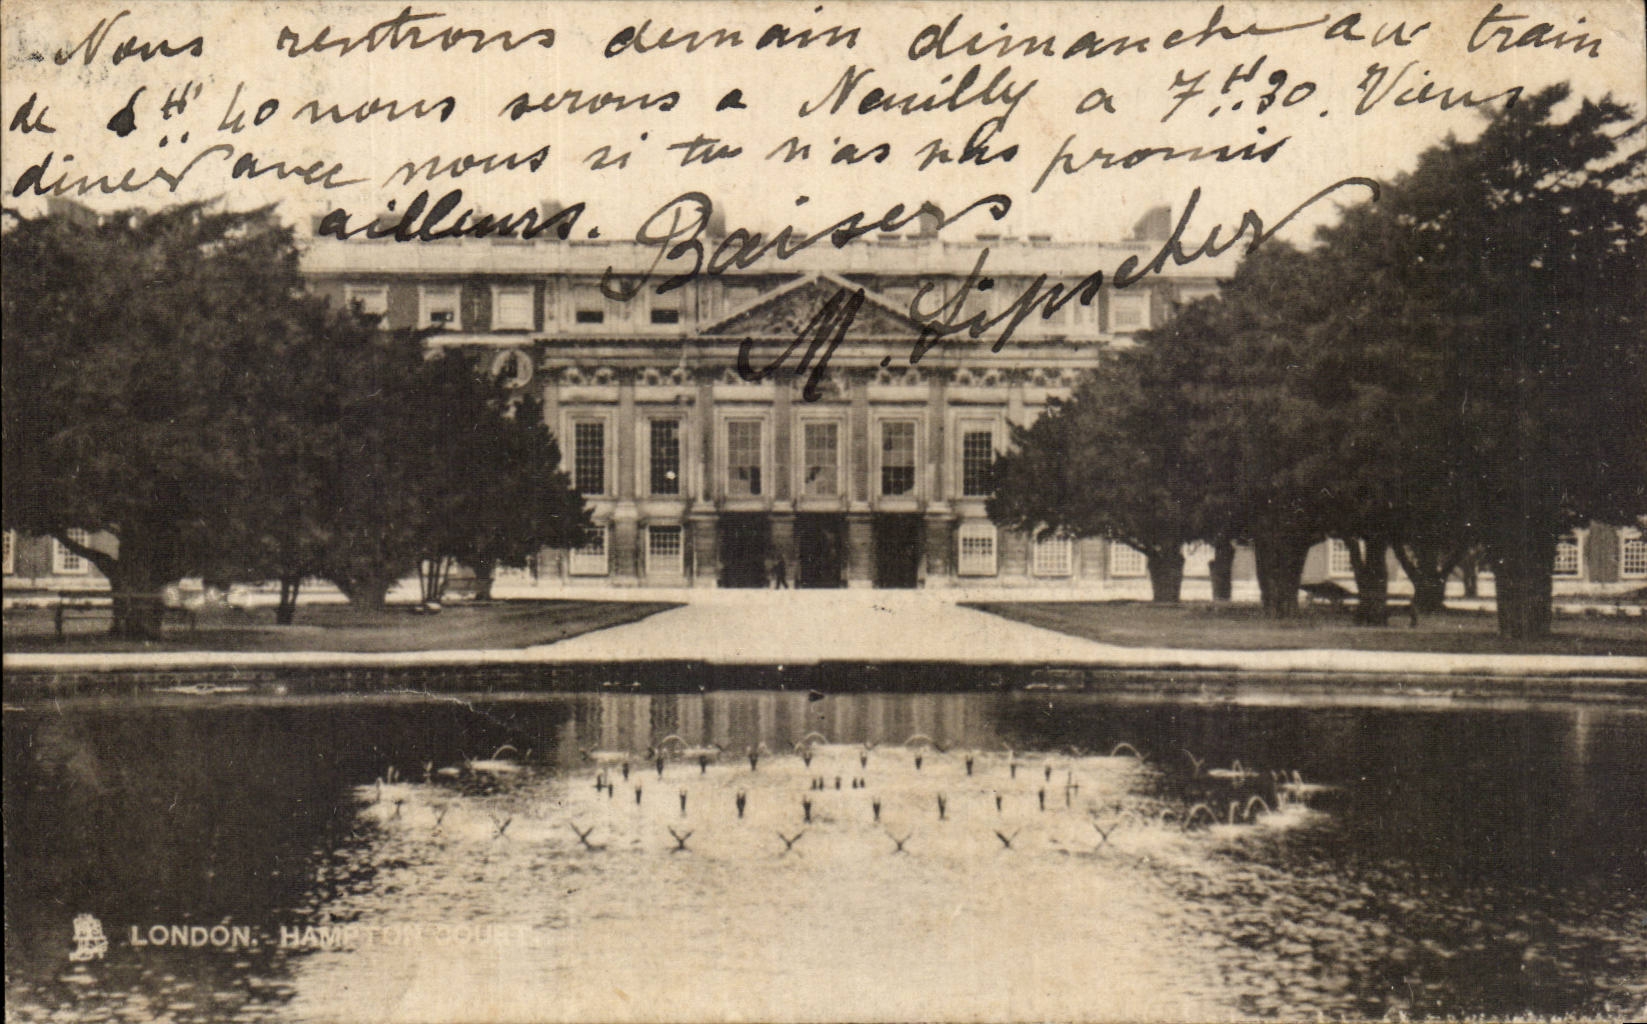 Nous rentrons demain dimanche au train
de H 40 nous serons a Neuilly a 7H30. Viens
diner avec nous si tu n'as pas promis
ailleurs. Baisers
M. Lipscher
LONDON. - HAMPTON COURT.